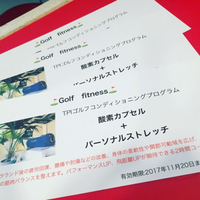 Golf fitness
TPIゴルフコンディショニングプログラム
酸素カプセル
+
パーソナルストレッチ
Golf fitness
TPIゴルフコンディショニングプログラム
酸素カプセル
+
パーソナルストレッチ
ラウンド後の疲労回復、腰痛や肘痛などの改善、身体の柔軟性や関節可動域を広げ、
の筋肉バランスを整えます。パフォーマンスUP、飛距離UPが期待できる2時間コ
有効期限2017年11月20日ま